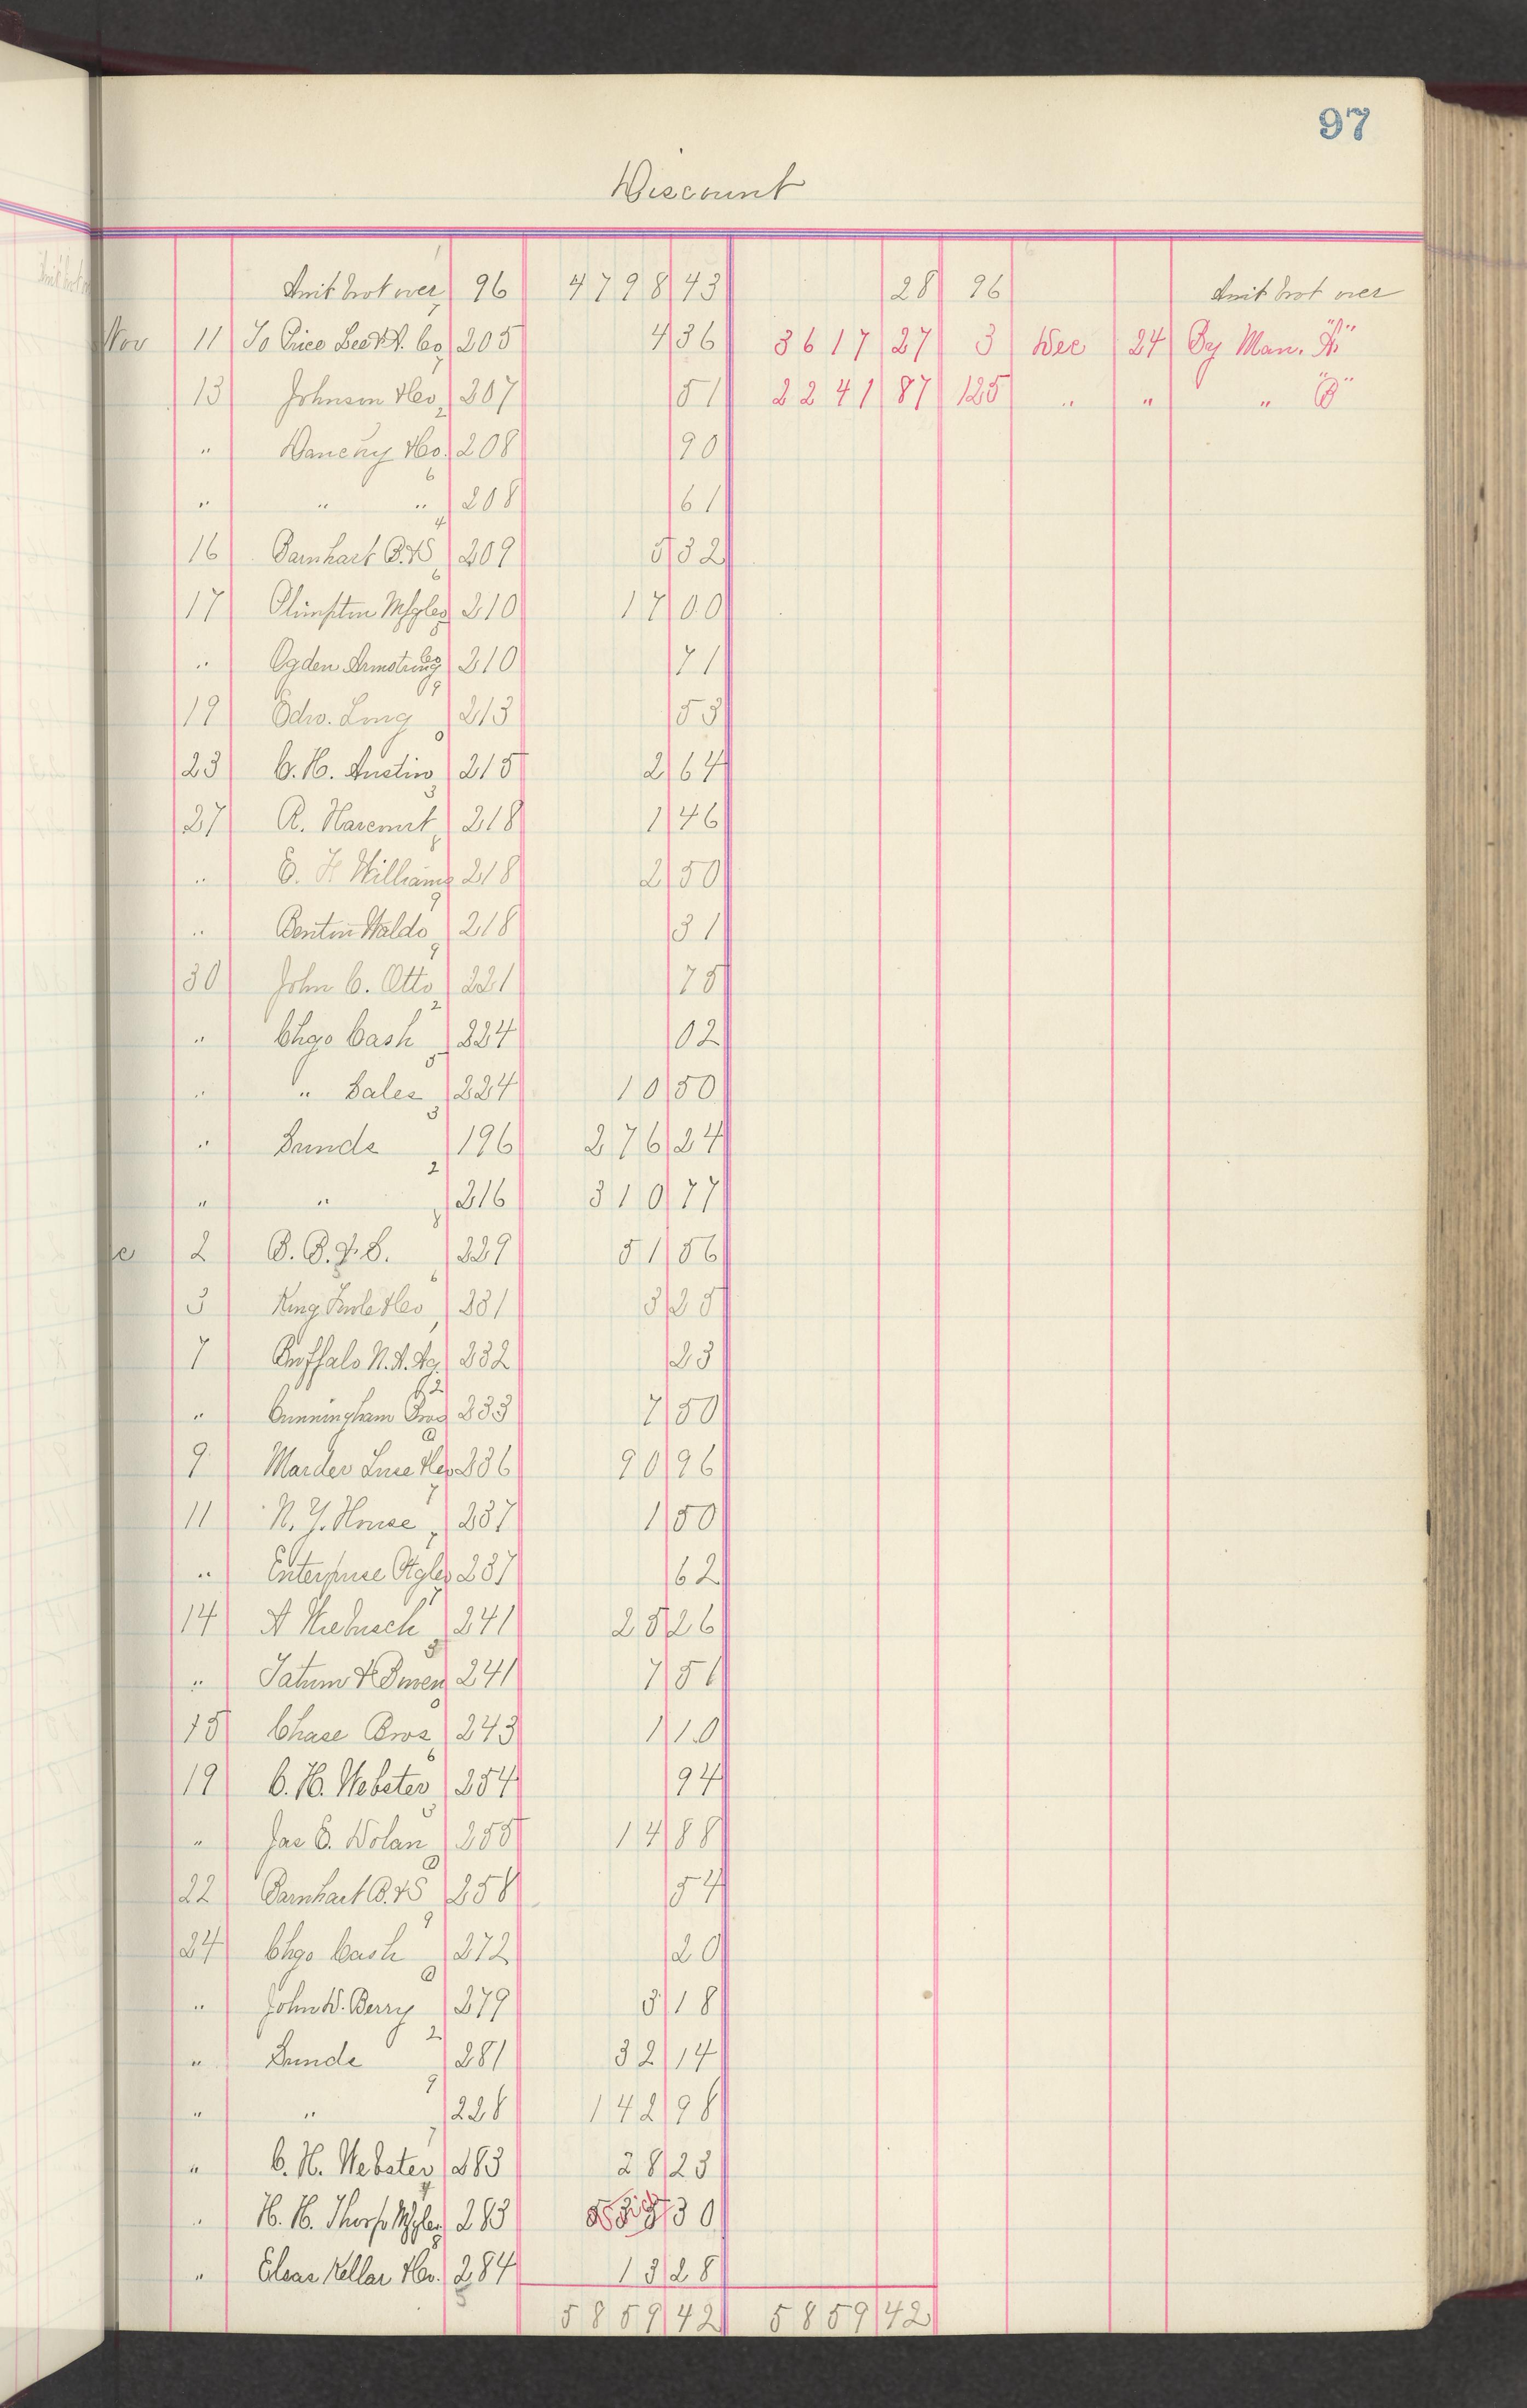 97
Discount
Amt brot over 96 4798 43 28 96 Amt brot over
Nov 11 To Price Lee & Co 205 4 36 3617 27 3 Dec 24 By Man. "A"
13 Johnson & Co 207 51 2241 87 125 " " " "B"
" Dauchy & Co. 208 90
" " " 208 61
16 Barnhart B. & S 209 5 32
17 Mfg Co 210 17 00
" Ogden Armstrong Co 210 71
19 Edw. Long 213 53
23 C. H. Austin 215 2 64
27 R. Harcourt 218 1 46
" E. H. Williams 218 2 50
" Benton Waldo 218 31
30 John C. Otto 221 75
" Chgo Cash 224 02
" " Sales 224 10 50
" Sunds 196 276 24
" " 216 310 77
2 229 51 56
3 King & Co 231 3 25
7 Buffalo N. A. 232 23
" Cunningham Bros 233 7 50
9 Marder Luse & Co 236 90 96
11 N. Y. House 237 1 50
" Enterprise Co 237 62
14 A 241 25 26
" Tatum & Bowen 241 7 51
15 Chase Bros 243 1 10
19 C. H. Webster 254 94
" Jas E. Nolan 255 14 88
22 Barnhart B. & S 258 54
24 Chgo Cash 272 20
" John D. Berry 279 3 18
" Sunds 281 32 14
" " 228 142 98
" C. H. Webster 283 28 23
" H. H. Thorp Mfg Co 283 30
" Kellar & Co. 284 13 28
5859 42 5859 42